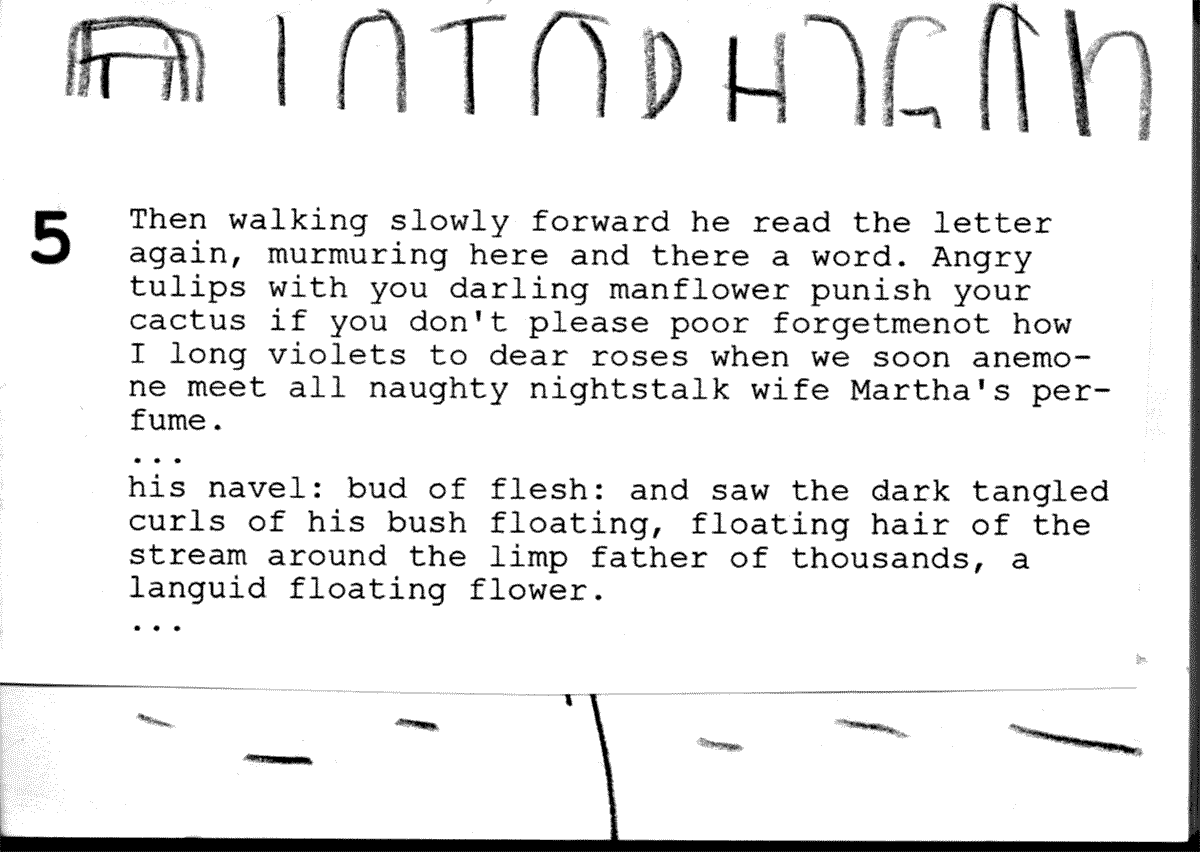 5
Then walking slowly forward he read the letter
again, murmuring here and there a word. Angry
tulips with you darling manflower punish your
cactus if you don't please poor forgetmenot how
I long violets to dear roses when we soon anemo-
ne meet all naughty nightstalk wife Martha's per-
fume.
...
his navel: bud of flesh: and saw the dark tangled
curls of his bush floating, floating hair of the
stream around the limp father of thousands, a
languid floating flower.
...